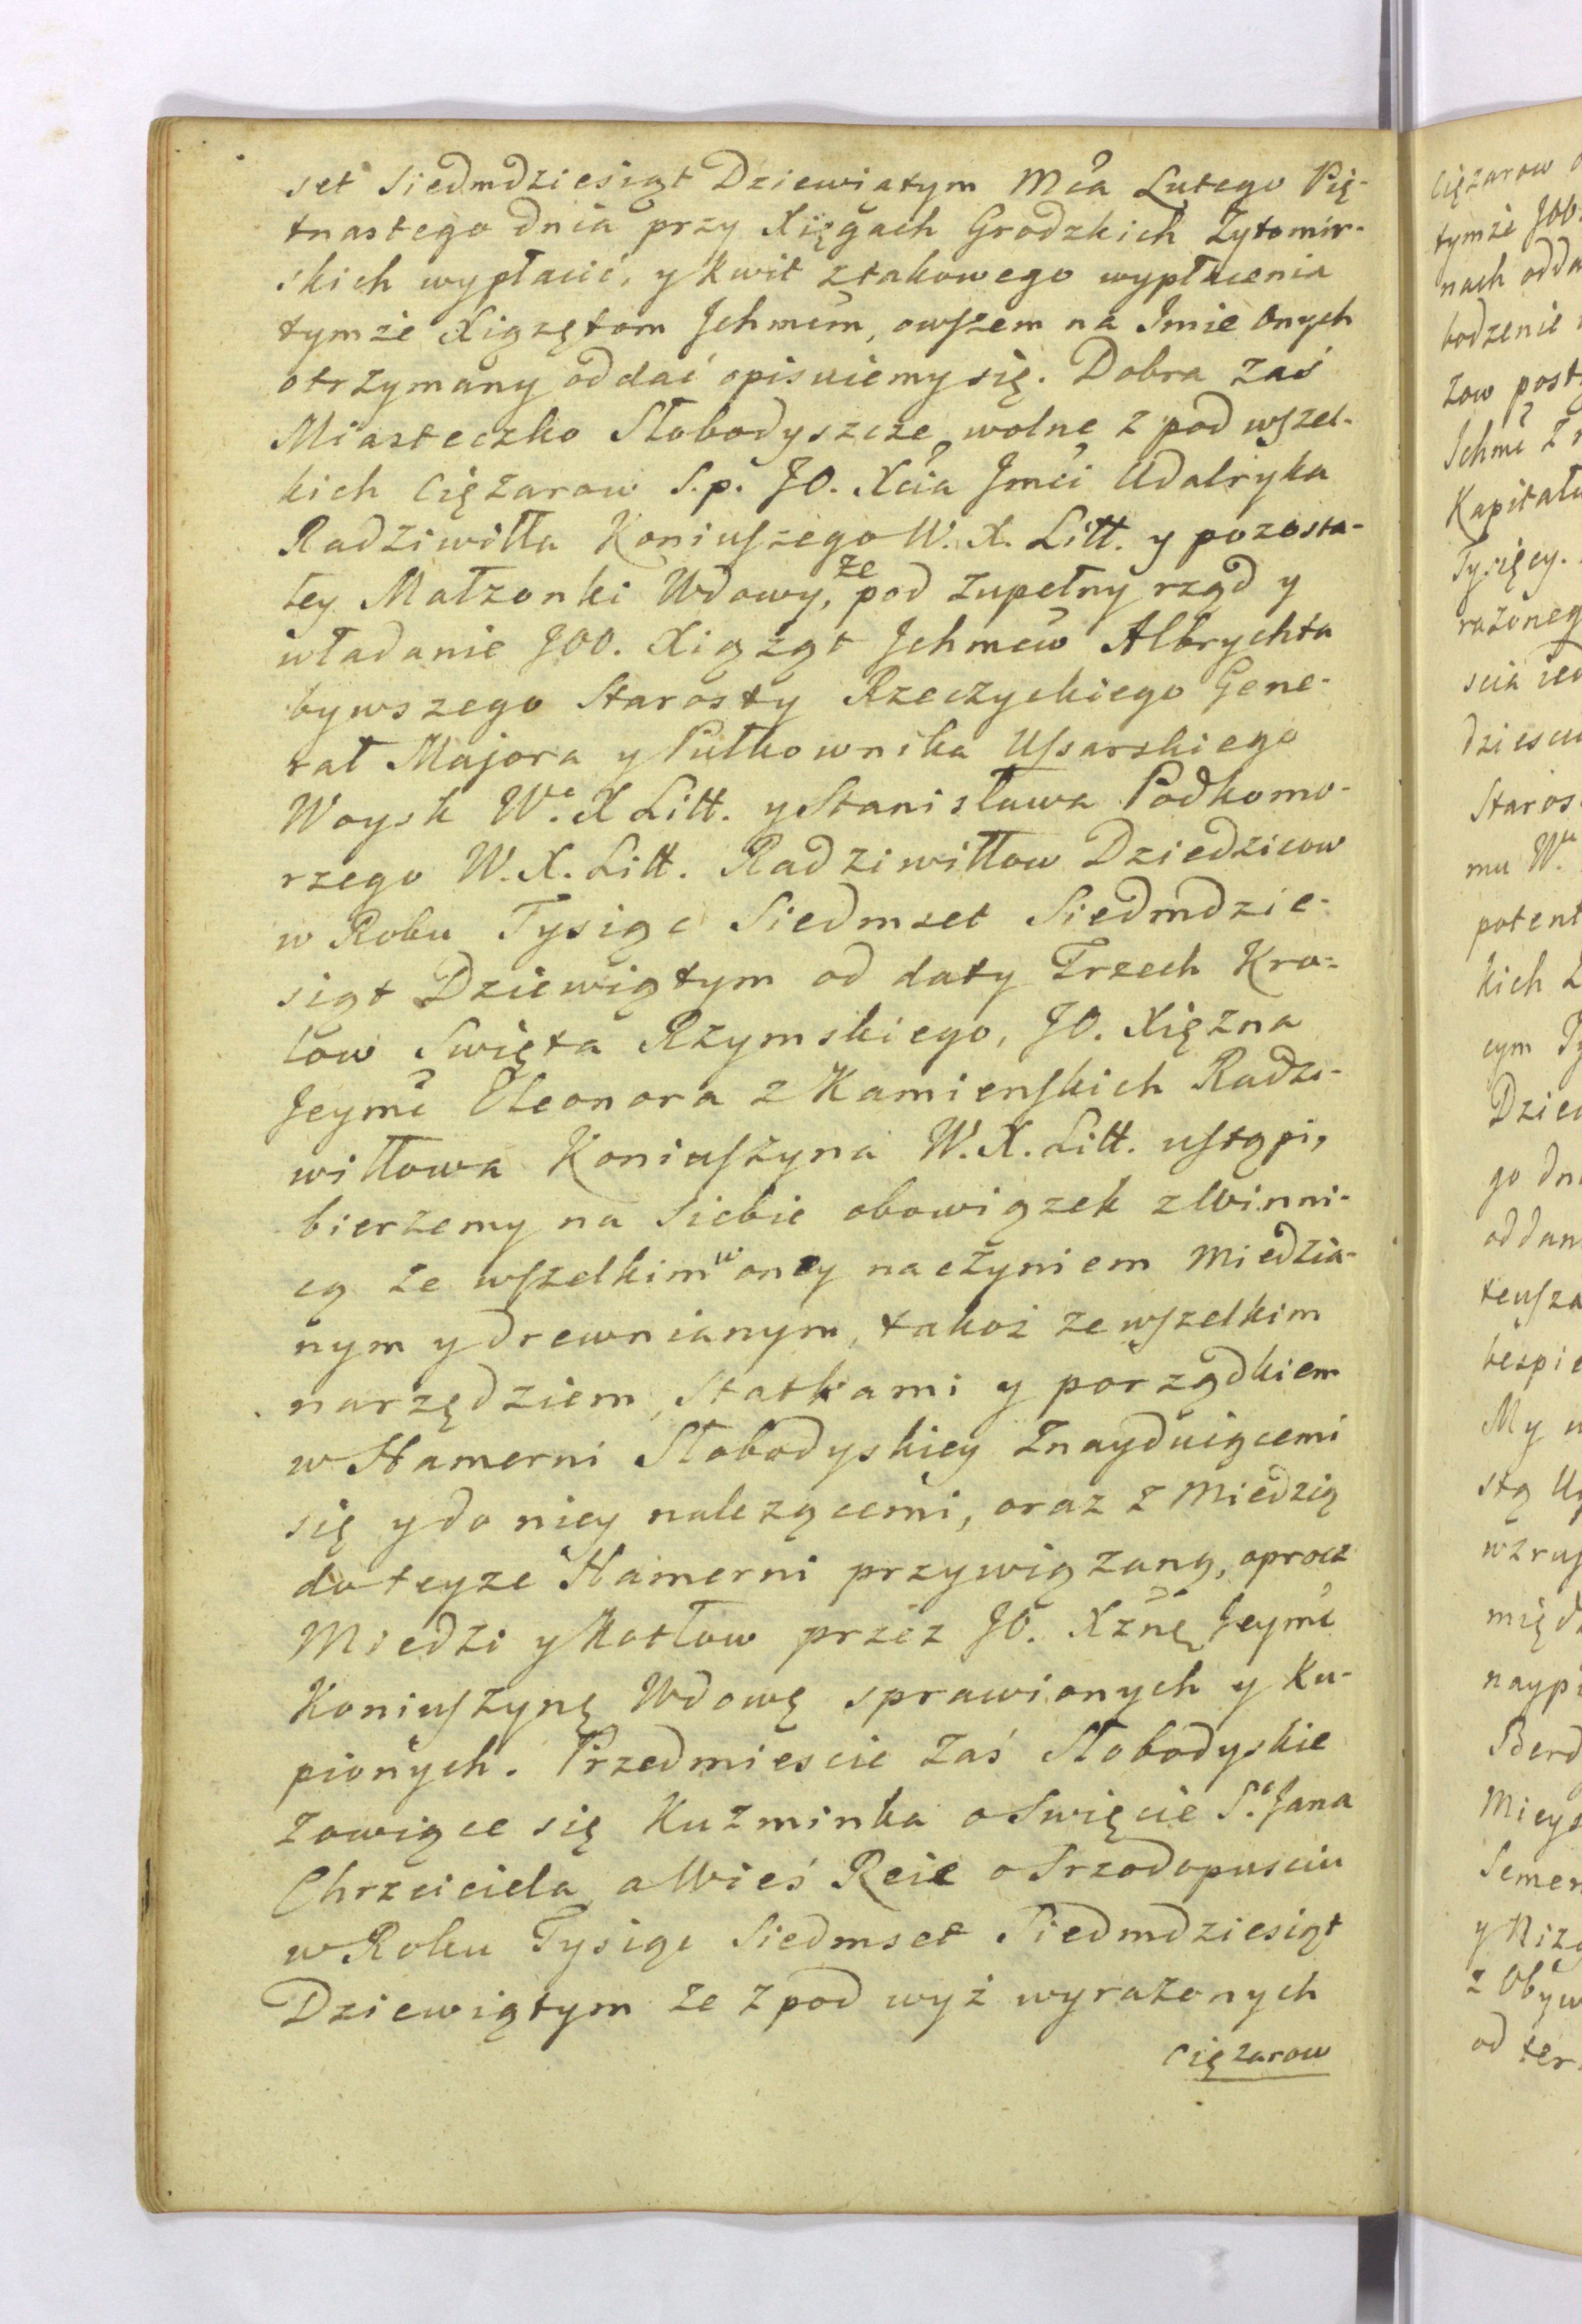 set Siedmdziesiąt Dziewiątym Mca Lutego Pię-
tnastego dnia przy Xięgach Grodzkich Zytomir-
skich wypłacić, y kwit ztakowego wypłacenia
tymże Xiązętom Jchmćm, owszem na Jmie onych
otrzymany oddać opisuiemy się. Dobra zaś
Miasteczko Słobodyszcze wolne z pod wszel-
kich Ciężarow S.p. JO. Xcia Jmći Udalryka
Radziwiłła Koniuszego W. X. Litt. y pozosta-
łey Małżonki Wdowy, że pod zupełny rząd y
władanie JOO. Xiążąt Jchmćw Albrychta
bywszego Starosty Rzeczyckiego Gene-
rał Majora y Pułkownika Ussarskiego
Woysk W. X Litt. y Stanisława Podkomo-
rzego W. X. Litt. Radziwiłłow Dziedzicow
w Roku Tysiąc Siedmset Siedmdzie-
siąt Dziewiątym od daty Trzech Kro-
low Święta Rzymskiego, JO. Xiężna
Jeymć Eleonora z Kamienskich Radzi-
wiłłowa Koniuszyna W. X. Litt. ustąpi,
bierzemy na siebie obowiązek z Winni-
cą ze wszelkim w oney naczyniem miedzia-
nym y drewnianym, takoż ze wszelkim
narzędziem, Statkami y porządkiem
w Hamerni Słobodyskiey znayduiącemi
się y do niey nalezącemi, oraz z Miedzią
do teyże Hamerni przywiązaną, oprocz
Miedzi y Kotłow przez JO. Xżnę Jeymć
Koniuszynę Wdowę sprawionych y ku-
pionych. Przedmieście zaś Słobodyskie
zowiące się Kuzminka o Swięcie S. Jana
Chrzciciela, a Wieś Reie o Srzodopusciu
w Roku Tysiąc Siedmset Siedmdziesiąt
Dziewiątym ze z pod wyż wyrażonych
Ciężarow
Ciężarow
tymże JOO.
nach odda
Kapitału
Tysięcy.
Dziew
My
Berd
z Obyw